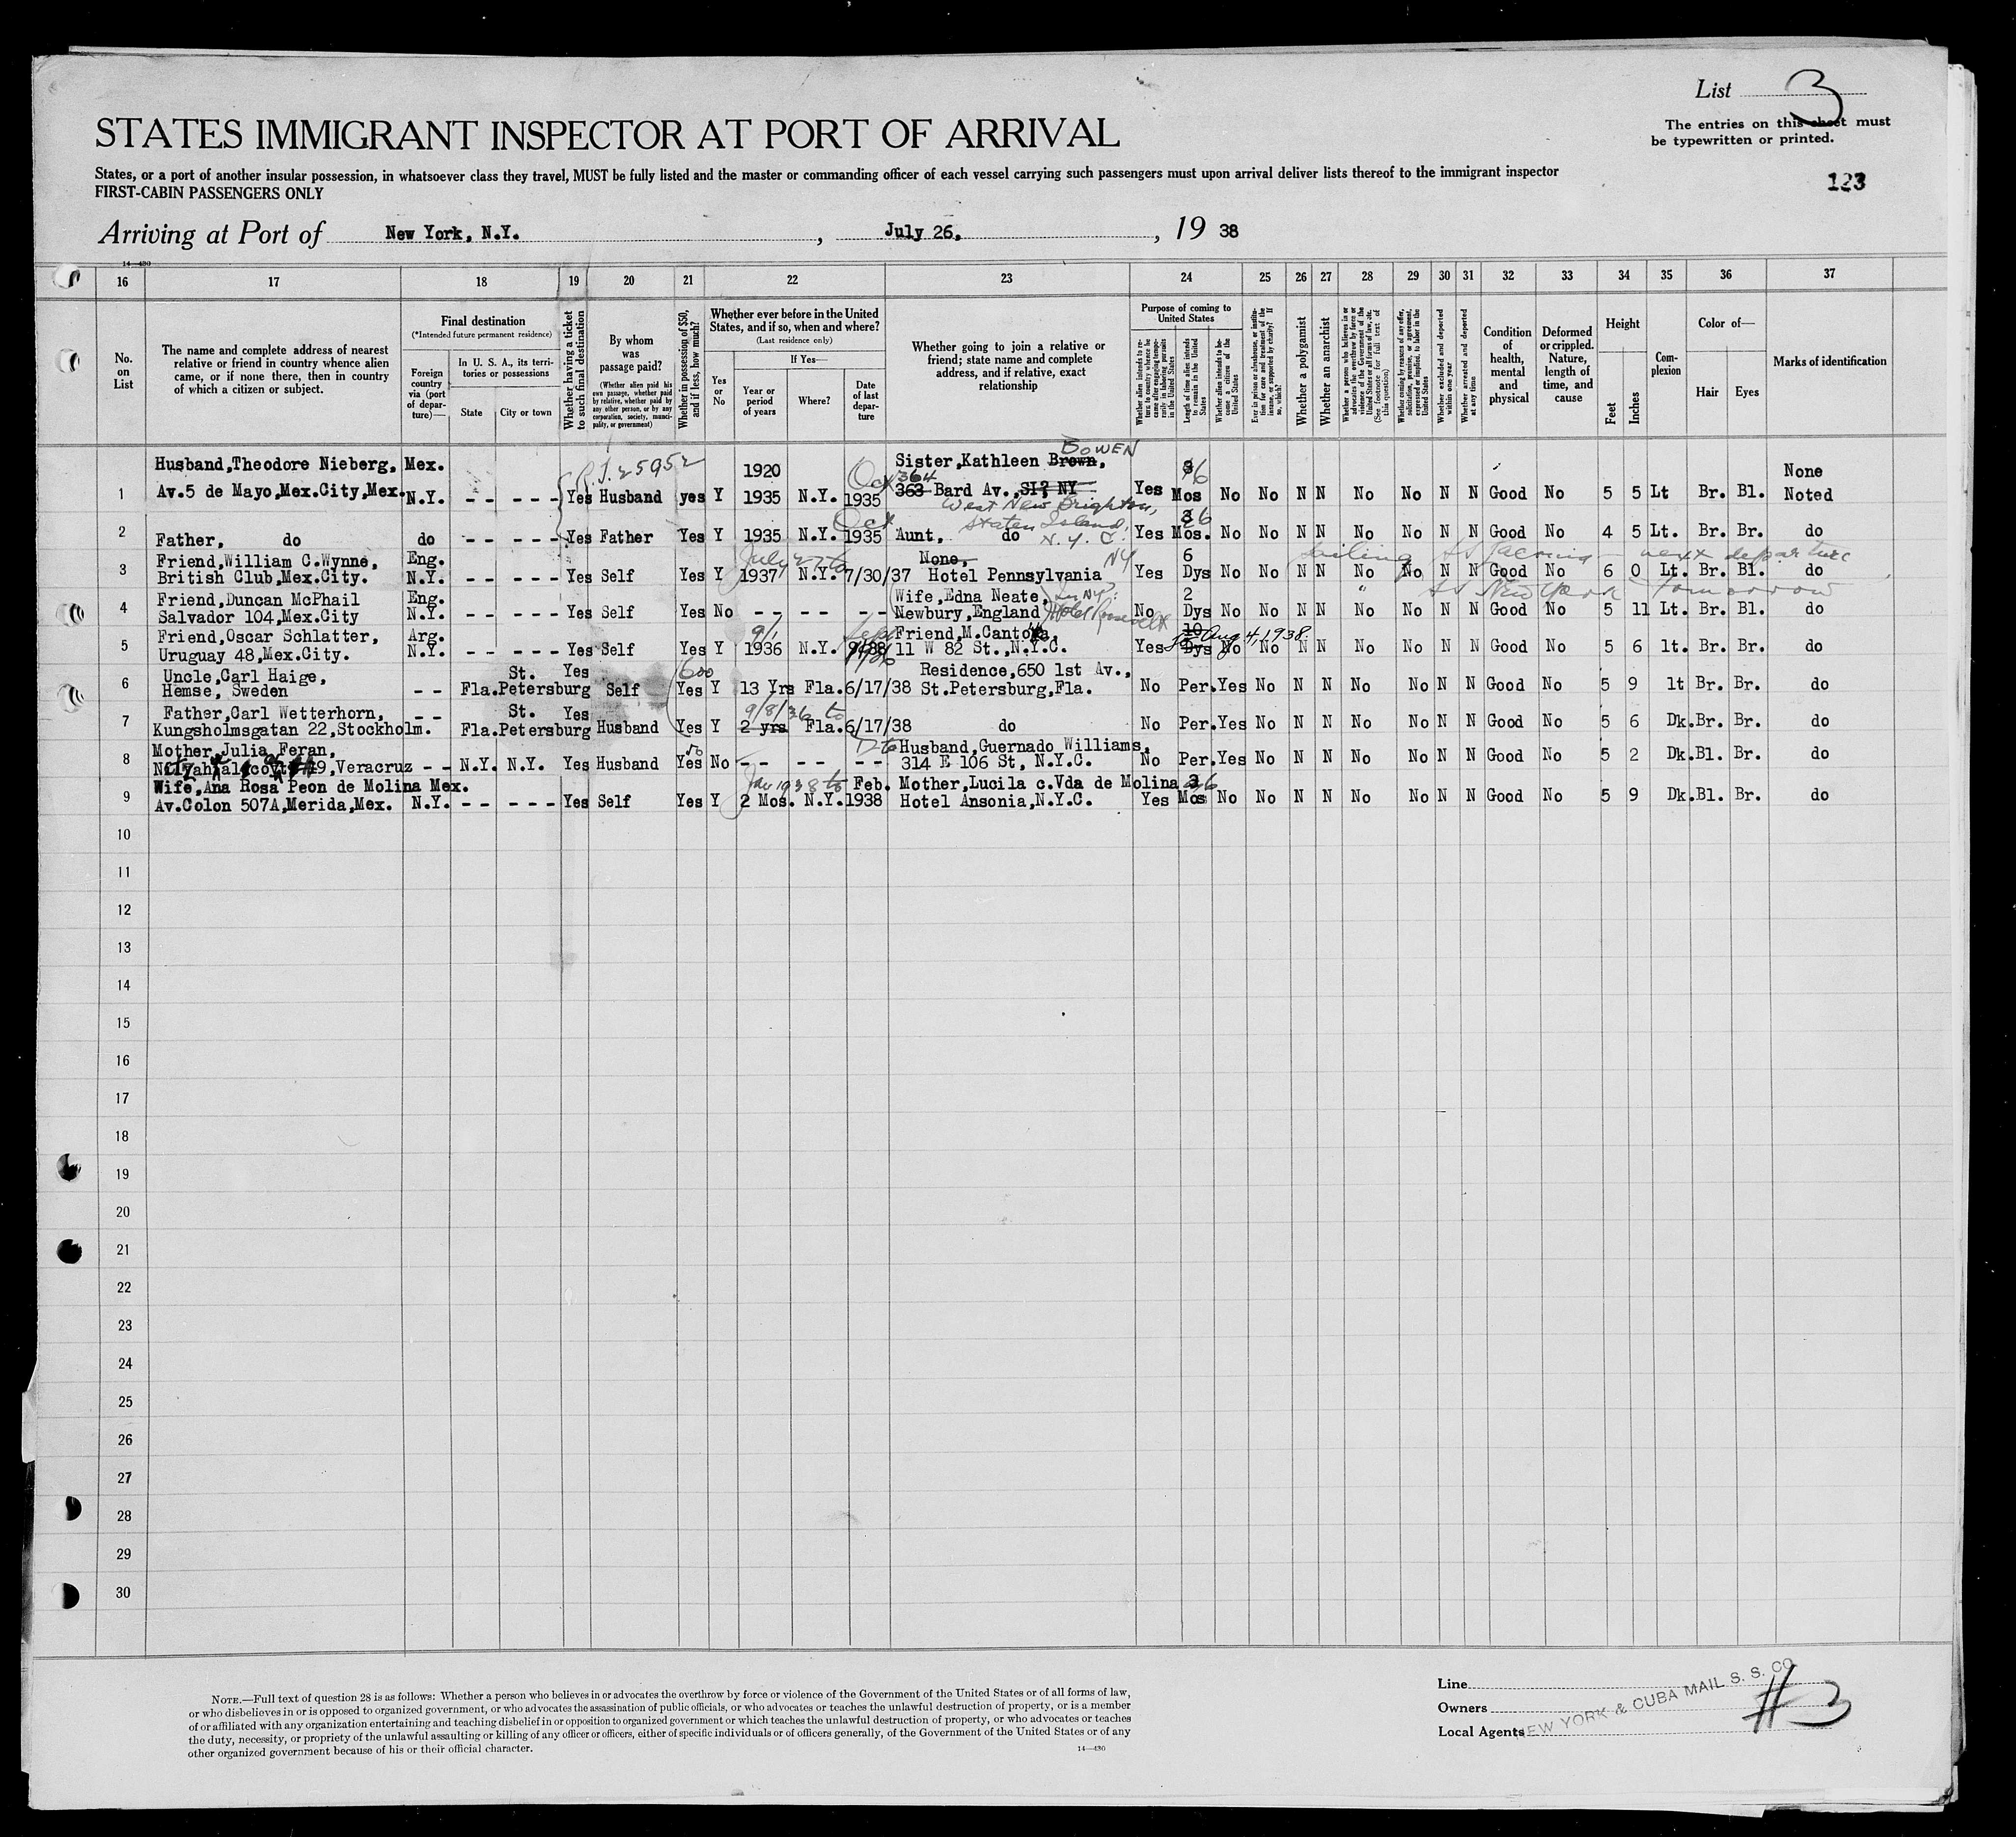 List 3
STATES IMMIGRANT INSPECTOR AT PORT OF ARRIVAL
The entries on this sheet must
be typewritten or printed.
States, or a port of another insular possession, in whatsoever class they travel, MUST be fully listed and the master or commanding officer of each vessel carrying such passengers must upon arrival deliver lists thereof to the immigrant inspector
FIRST-CABIN PASSENGERS ONLY
123
Arriving at Port of New York, N.Y., July 26, 19 38
14—430
16 17 18 19 20 21 22 23 24 25 26 27 28 29 30 31 32 33 34 35 36 37
No.
on
List
The name and complete address of nearest
relative or friend in country whence alien
came, or if none there, then in country
of which a citizen or subject.
Final destination
(*Intended future permanent residence)
Foreign
country
via (port
of depar-
ture)—
In U. S. A., its terri-
tories or possessions
State
City or town
Whether having a ticket
to such final destination
By whom
was
passage paid?
(Whether alien paid his
own passage, whether paid
by relative, whether paid by
any other person, or by any
corporation, society, munici-
pality, or government)
Whether in possession of $50,
and if less, how much?
Whether ever before in the United
States, and if so, when and where?
(Last residence only)
Yes
or
No
If Yes—
Year or
period
of years
Where?
Date
of last
depar-
ture
Whether going to join a relative or
friend; state name and complete
address, and if relative, exact
relationship
Purpose of coming to
United States
Whether alien intends to re-
turn to country whence he
came after engaging tempo-
rarily in laboring pursuits
in the United States
Length of time alien intends
to remain in the United
States
Whether alien intends to be-
come a citizen of the
United States
Ever in prison or almshouse, or institu-
tion for care and treatment of the
insane, or supported by charity? If
so, which?
Whether a polygamist
Whether an anarchist
Whether a person who believes in or
advocates the overthrow by force or
violence of the Government of the
United States or all forms of law, etc.
(See footnote for full text of
this question)
Whether coming by reason of any offer,
solicitation, promise, or agreement,
expressed or implied, to labor in the
United States
Whether excluded and deported
within one year
Whether arrested and deported
at any time
Condition
of
health,
mental
and
physical
Deformed
or crippled.
Nature,
length of
time, and
cause
Height
Feet
Inches
Com-
plexion
Color of—
Hair
Eyes
Marks of identification
BOWEN
Husband,Theodore Nieberg, Mex. R.J.25952 1920 Sister,Kathleen Brown, 3 6 None
1 Av.5 de Mayo,Mex.City,Mex. N.Y. - - - - - Yes Husband yes Y 1935 N.Y. Oct 1935 364 363 Bard Av.,SI, NY Yes Mos No No N N No No N N Good No 5 5 Lt Br. Bl. Noted
West New Brighton,
Staten Island, N.Y.C.
2 Father, do do - - - - - Yes Father Yes Y 1935 N.Y. Oct 1935 Aunt, do Yes 3 6 Mos. No No N N No No N N Good No 4 5 Lt. Br. Br. do
Friend,William C.Wynne, Eng. July 27 to None, NY 6 sailing next departure
3 British Club,Mex.City. N.Y. - - - - - Yes Self Yes Y 1937 N.Y. 7/30/37 Hotel Pennsylvania Yes Dys No No N N No No N N Good No 6 0 Lt. Br. Bl. do
Friend,Duncan McPhail Eng. Wife,Edna Neate, In NY: 2 " SS New York tomorrow
4 Salvador 104,Mex.City N.Y. - - - - - Yes Self Yes No - - - - - - Newbury,England Hotel Roosevelt No Dys No No N N No No N N Good No 5 11 Lt. Br. Bl. do
Friend,Oscar Schlatter, Arg. 9/ Sept Friend,M.Canto 10 Aug 4, 1938
5 Uruguay 48,Mex.City. N.Y. - - - - - Yes Self Yes Y 1936 N.Y. 11 W 82 St.,N.Y.C. Yes Dys No No N N No No N N Good No 5 6 lt. Br. Br. do
Uncle,Carl Haige, St. Yes 600 Residence,650 1st Av.,
6 Hemse, Sweden - - Fla.Petersburg Self Yes Y 13 Yrs Fla.6/17/38 St.Petersburg,Fla. No Per.Yes No N N No No N N Good No 5 9 lt Br. Br. do
Father,Carl Wetterhorn, - - St. Yes 9/8/36 to
7 Kungsholmsgatan 22,Stockholm. Fla.Petersburg Husband Yes Y 2 yrs Fla.6/17/38 do No Per.Yes No N N No No N N Good No 5 6 Dk.Br. Br. do
Mother,Julia Feran, 50 Husband,Guernado Williams,
8 19,Veracruz - - N.Y. N.Y. Yes Husband Yes No - - - - - - 314 E 106 St, N.Y.C. No Per.Yes No N N No No N N Good No 5 2 Dk.Bl. Br. do
Wife,Ana Rosa Peon de Molina Mex. Jan 1938 to Feb. Mother,Lucila c.Vda de Molina 3 6
9 Av.Colon 507A,Merida,Mex. N.Y. - - - - - Yes Self Yes Y 2 Mos. N.Y. 1938 Hotel Ansonia,N.Y.C. Yes Mos No No N N No No N N Good No 5 9 Dk.Bl. Br. do
10
11
12
13
14
15
16
17
18
19
20
21
22
23
24
25
26
27
28
29
30
NOTE.—Full text of question 28 is as follows: Whether a person who believes in or advocates the overthrow by force or violence of the Government of the United States or of all forms of law,
or who disbelieves in or is opposed to organized government, or who advocates the assassination of public officials, or who advocates or teaches the unlawful destruction of property, or is a member
of or affiliated with any organization entertaining and teaching disbelief in or opposition to organized government or which teaches the unlawful destruction of property, or who advocates or teaches
the duty, necessity, or propriety of the unlawful assaulting or killing of any officer or officers, either of specific individuals or of officers generally, of the Government of the United States or of any
other organized government because of his or their official character.
14—430
Line
Owners
Local Agents
NEW YORK & CUBA MAIL S. S. CO.
#3